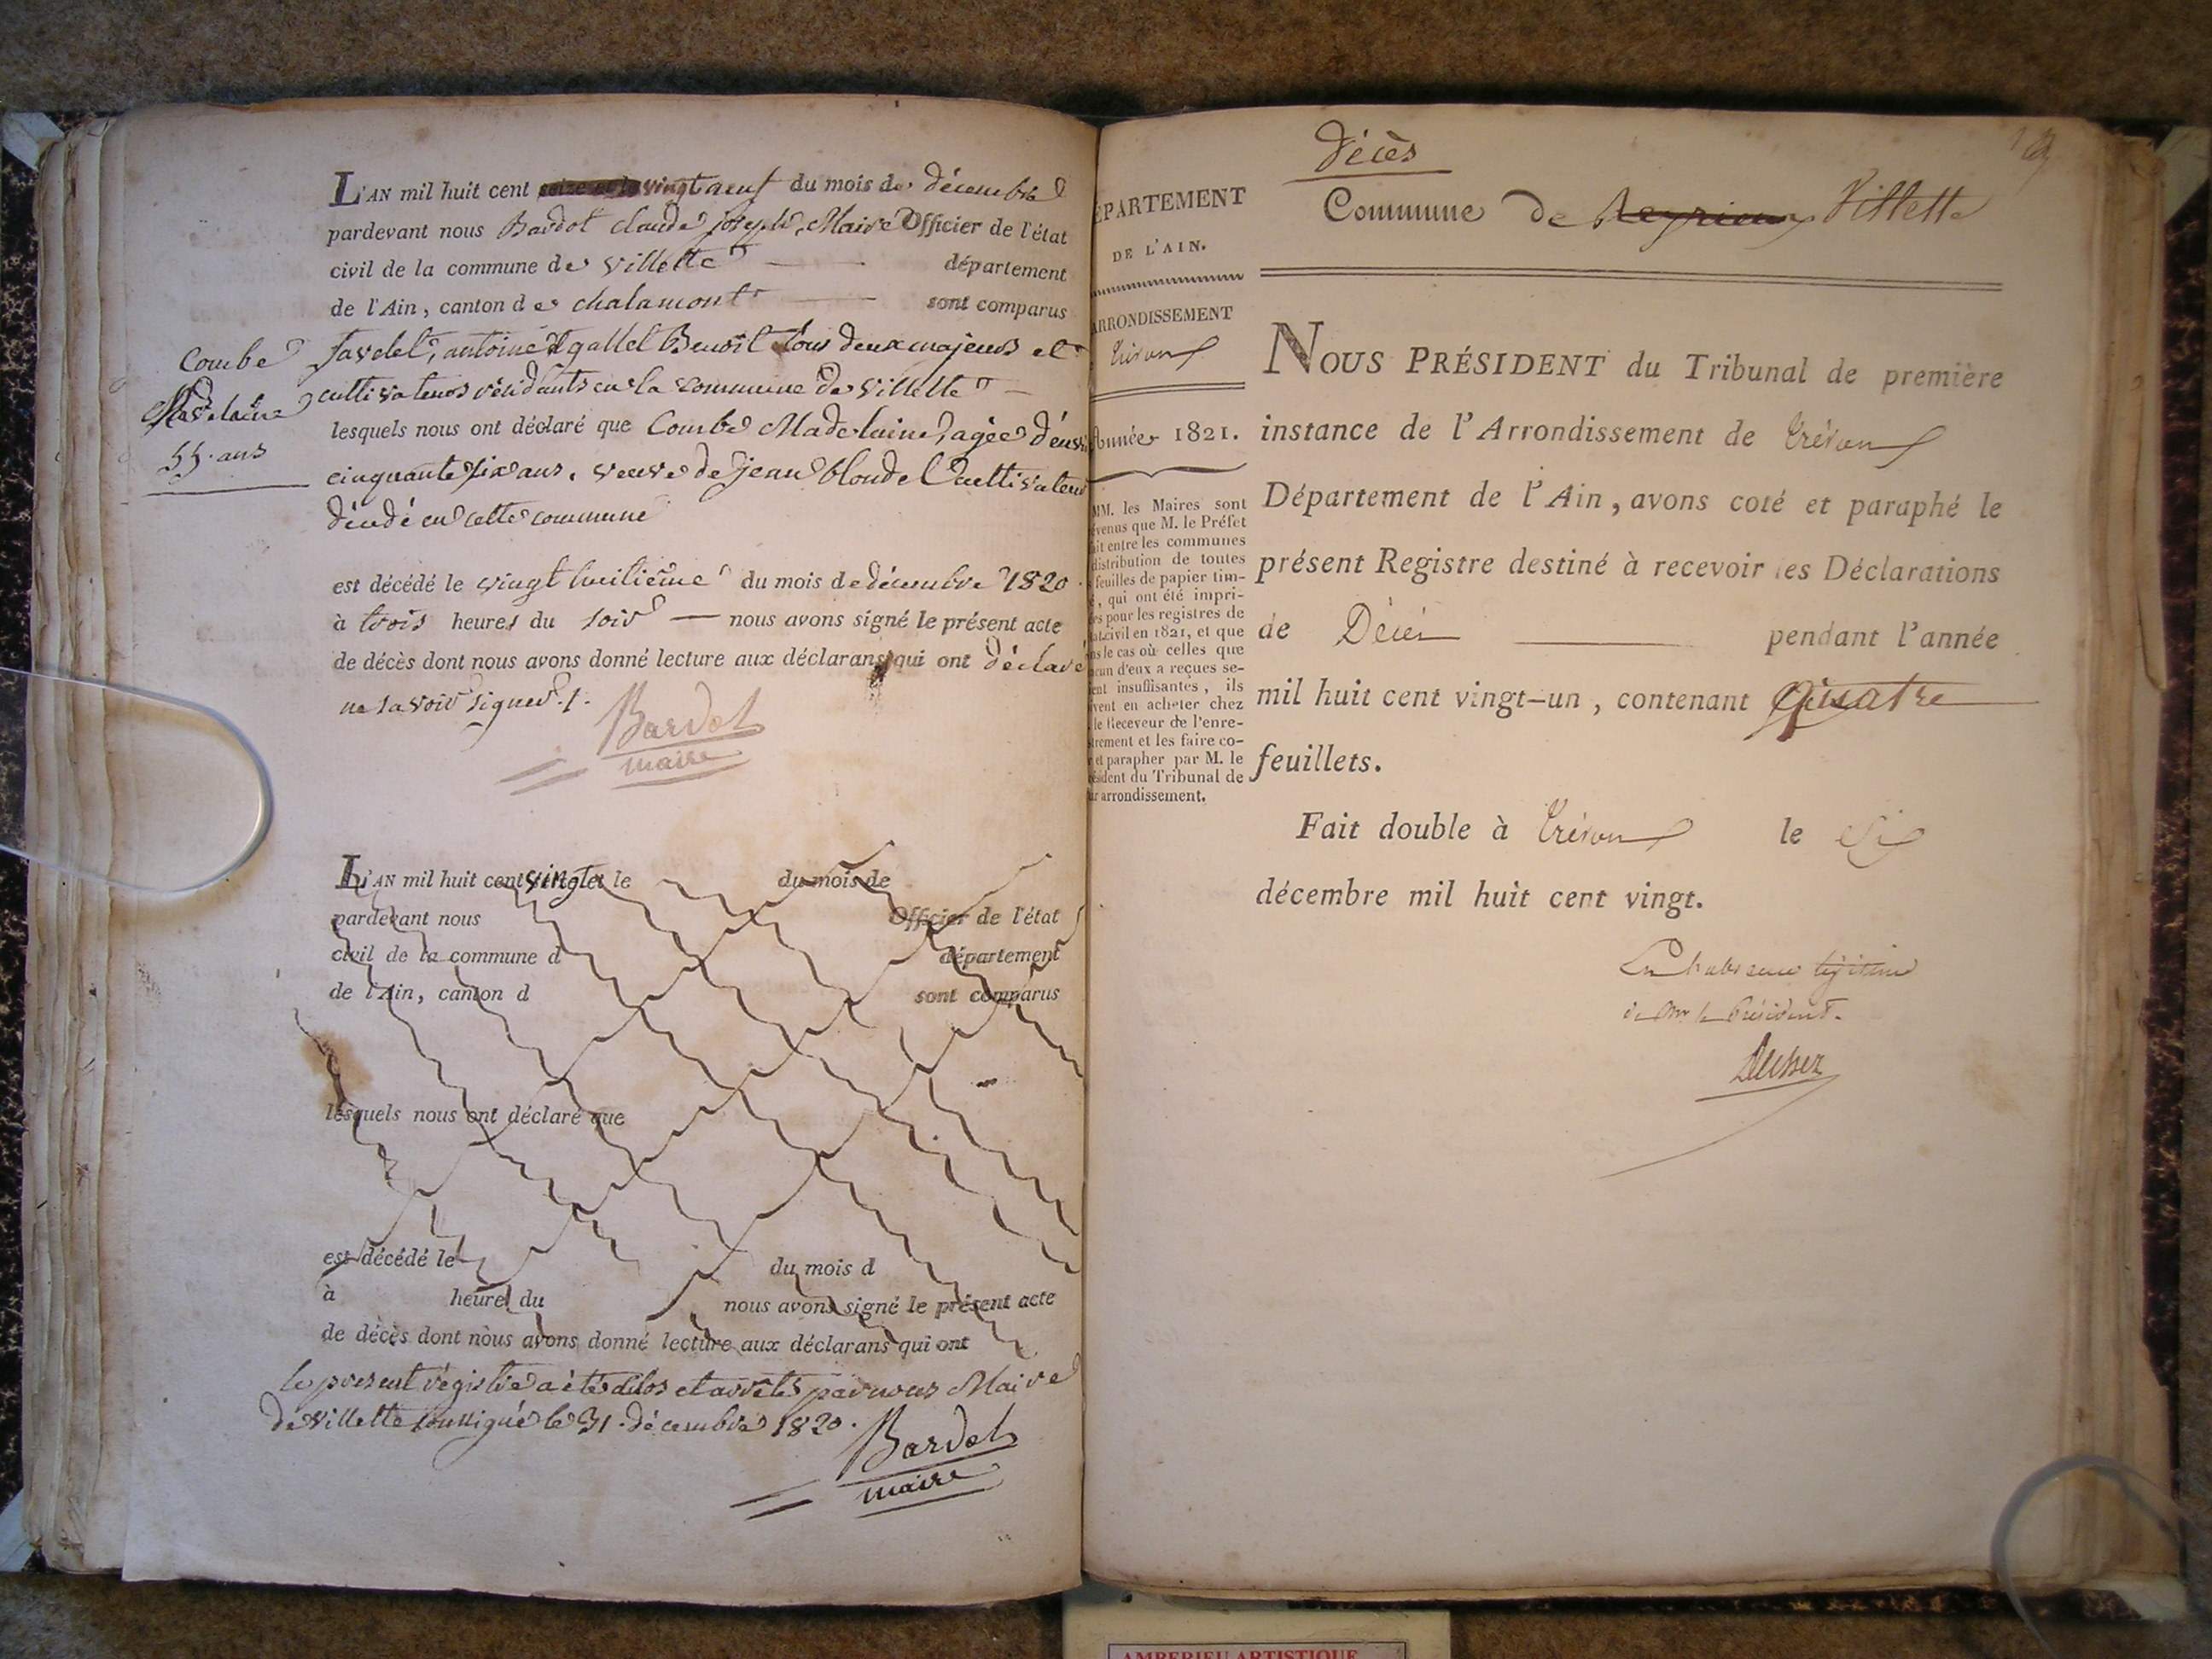 L'AN mil huit cent vingt neuf du mois de décembre
pardevant nous Bardot claude joseph, Maire Officier de l'état
civil de la commune de villette département
de l'Ain, canton de chalamont sont comparus
favelet, antoine et gallet Benoit tous deux majeurs et
cultivateurs résidants en la commune de villette
lesquels nous ont déclaré que Combe Madelaine, agée d'envi
cinquante six ans, veuve de jean blondel Cultivateur
décédé en cette commune
est décédé le vingt huitième du mois de décembre 1820.
à trois heures du soir — nous avons signé le présent acte
de décès dont nous avons donné lecture aux déclarans qui ont déclaré
ne savoir signer ./.
Bardot
maire
Combe
Madelaine
55. ans
L'AN mil huit cent vingt et le du mois de
pardevant nous Officier de l'état
civil de la commune d département
de l'Ain, canton d sont comparus
lesquels nous ont déclaré que
est décédé le du mois d
à heures du nous avons signé le présent acte
de décès dont nous avons donné lecture aux déclarans qui ont
le present régistre a été clos et arrêté par nous Maire
de villette soussigné le 31. décembre 1820.
Bardot
maire
Décès
Commune de Reyrieux Villette
ÉPARTEMENT
DE L'AIN.
ARRONDISSEMENT
Trévoux
Année 1821.
MM. les Maires sont
évenus que M. le Préfet
ait entre les communes
distribution de toutes
feuilles de papier tim-
é, qui ont été impri-
es pour les registres de
at civil en 1821, et que
ns le cas où celles que
acun d'eux a reçues se-
ient insuffisantes, ils
vent en acheter chez
le Receveur de l'enre-
trement et les faire co-
r et parapher par M. le
ésident du Tribunal de
ur arrondissement.
NOUS PRÉSIDENT du Tribunal de première
instance de l'Arrondissement de Trévoux
Département de l'Ain, avons coté et paraphé le
présent Registre destiné à recevoir les Déclarations
de Décès pendant l'année
mil huit cent vingt-un, contenant Quatre
feuillets.
Fait double à Trévoux le six
décembre mil huit cent vingt.
En l'absence légitime
de Mr le Président.
AMBERIEU ARTISTIQUE